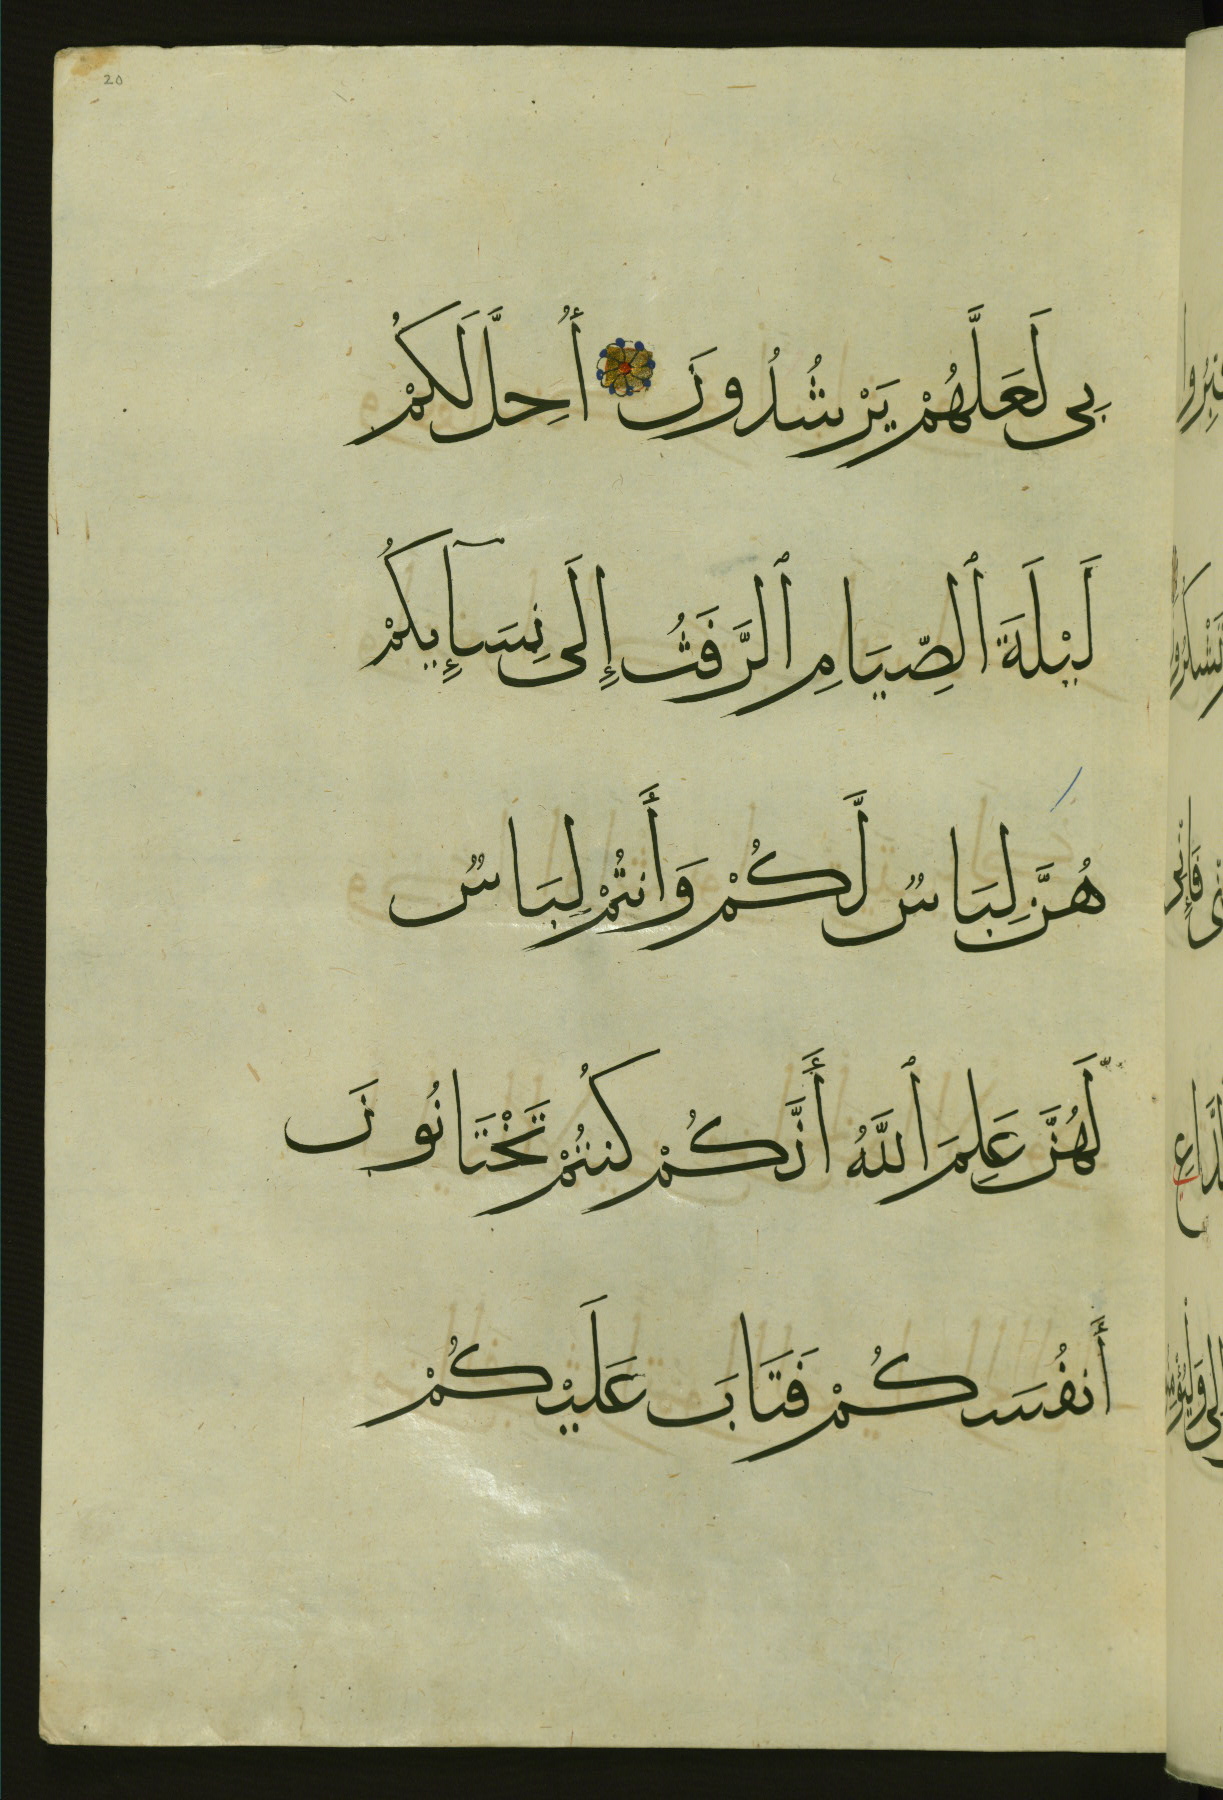 20
بِى لَعَلَّهُمْ يَرْشُدُونَ أُحِلَّ لَكُمْ
لَيْلَةَ ٱلصِّيَامِ ٱلرَّفَثُ إِلَى نِسَآٮِٕكُمْ
هُنَّ لِبَاسٌ لَّكُمْ وَأَنتُمْ لِبَاسٌ
لَّهُنَّ عَلِمَ ٱللَّهُ أَنَّكُمْ كُنتُمْ تَخْتَانُونَ
أَنفُسَكُمْ فَتَابَ عَلَيْكُمْ